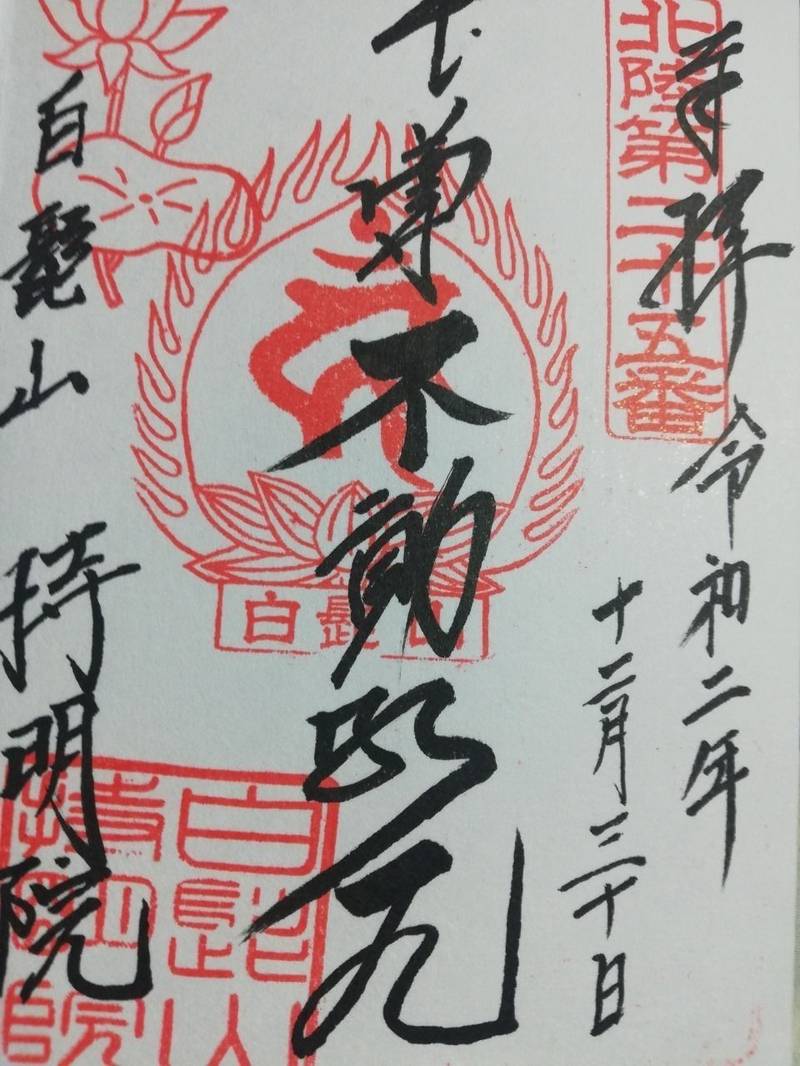 奉拝
令和二年
十二月三十日
北陸第二十五番
本尊不動
白髭山
白髭山
持明院
白髭山
持明院